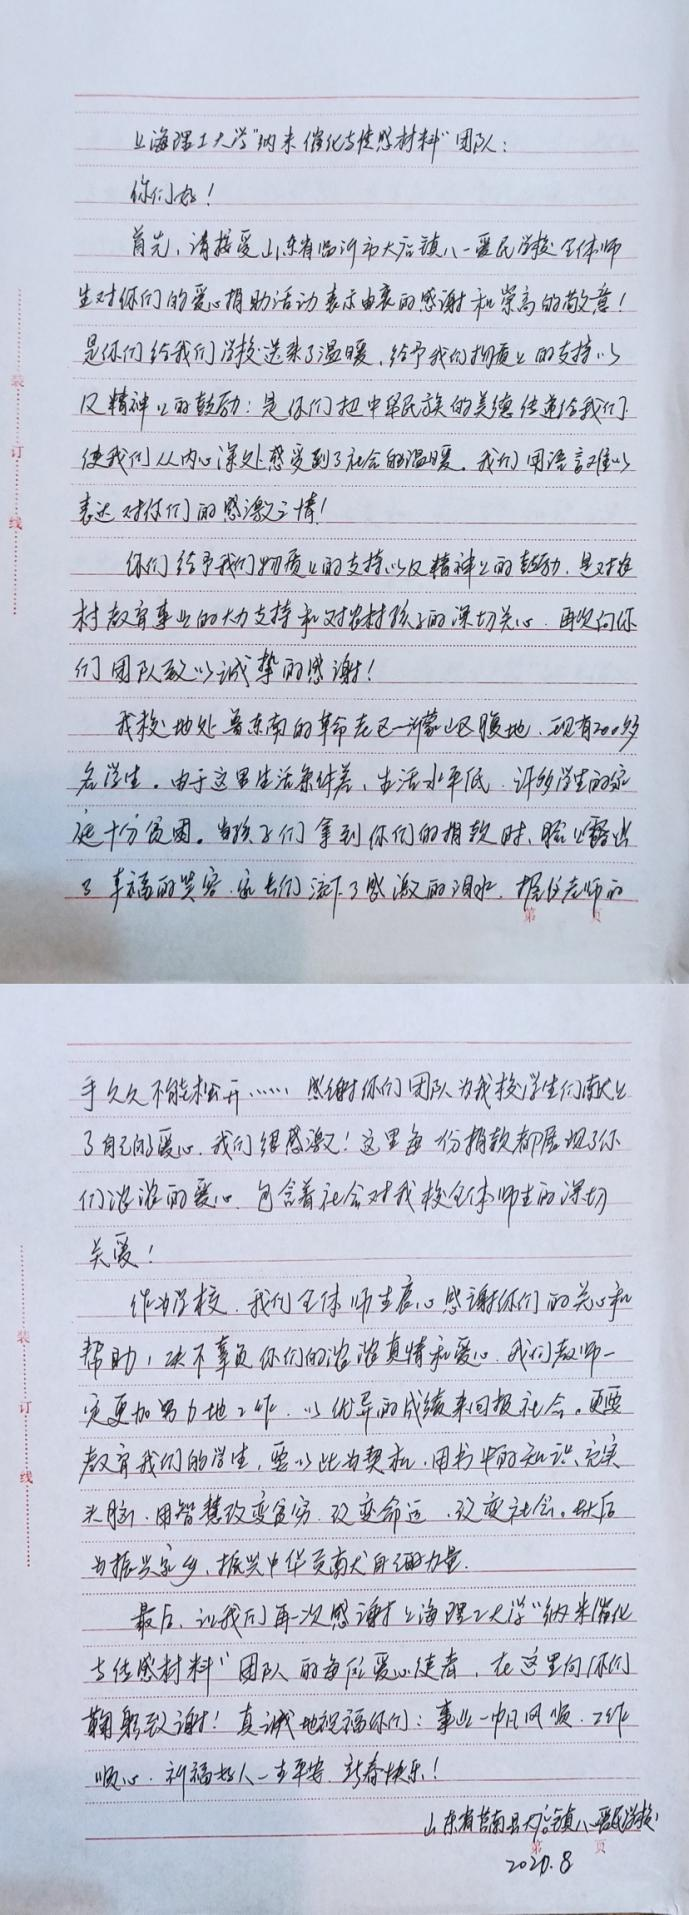 上海理工大学"纳米催化与传感材料"团队:
你们好!
首先,请接受山东省临沂市大店镇八一爱民学校全体师
生对你们的爱心捐助活动表示由衷的感谢和崇高的敬意!
是你们给我们学校送来了温暖,给予我们物质上的支持以
及精神上的鼓励;是你们把中华民族的美德传递给我们
使我们从内心深处感受到了社会的温暖。我们用语言难以
表达对你们的感激之情!
你们给予我们物质上的支持以及精神上的鼓励,是对农
村教育事业的大力支持和对农村孩子的深切关心,再次向你
们团队致以诚挚的感谢!
我校地处鲁东南的革命老区—沂蒙山区腹地,现有200多
名学生。由于这里生活条件差,生活水平低,许多学生的家
庭十分贫困。当孩子们拿到你们的捐款时,脸上露出
了幸福的笑容,家长们流下了感激的泪水,握住老师的
第 页
装 订 线
手久久不能松开…… 感谢你们团队为我校学生们献上
了自己的爱心,我们很感激!这里每一份捐款都展现了你
们浓浓的爱心,包含着社会对我校全体师生的深切
关爱!
作为学校,我们全体师生衷心感谢你们的关心和
帮助,决不辜负你们的浓浓真情和爱心,我们教师一
定更加努力地工作,以优异的成绩来回报社会。更要
教育我们的学生,要以此为契机,用书中的知识、充实
头脑,用智慧改变贫穷,改变命运,改变社会。长大后
为振兴家乡,振兴中华贡献自己的力量.
最后,让我们再一次感谢上海理工大学"纳米催化
与传感材料"团队的每位爱心使者,在这里向你们
鞠躬致谢!真诚地祝福你们:事业一帆风顺,工作
顺心,祈福好人一生平安,新春快乐!
山东省莒南县大店镇八一爱民学校
第 页
2020.8
装 订 线